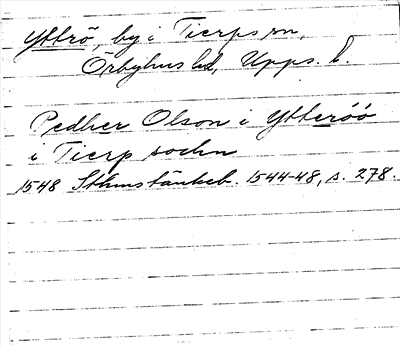 Yttrö, by i Tierps sn,
Örbyhus hd, Upps. l.
Pedher Olson i Ytteröö
i Tierp sochn
1548 Sthms tänkeb. 1544-48, s. 278.